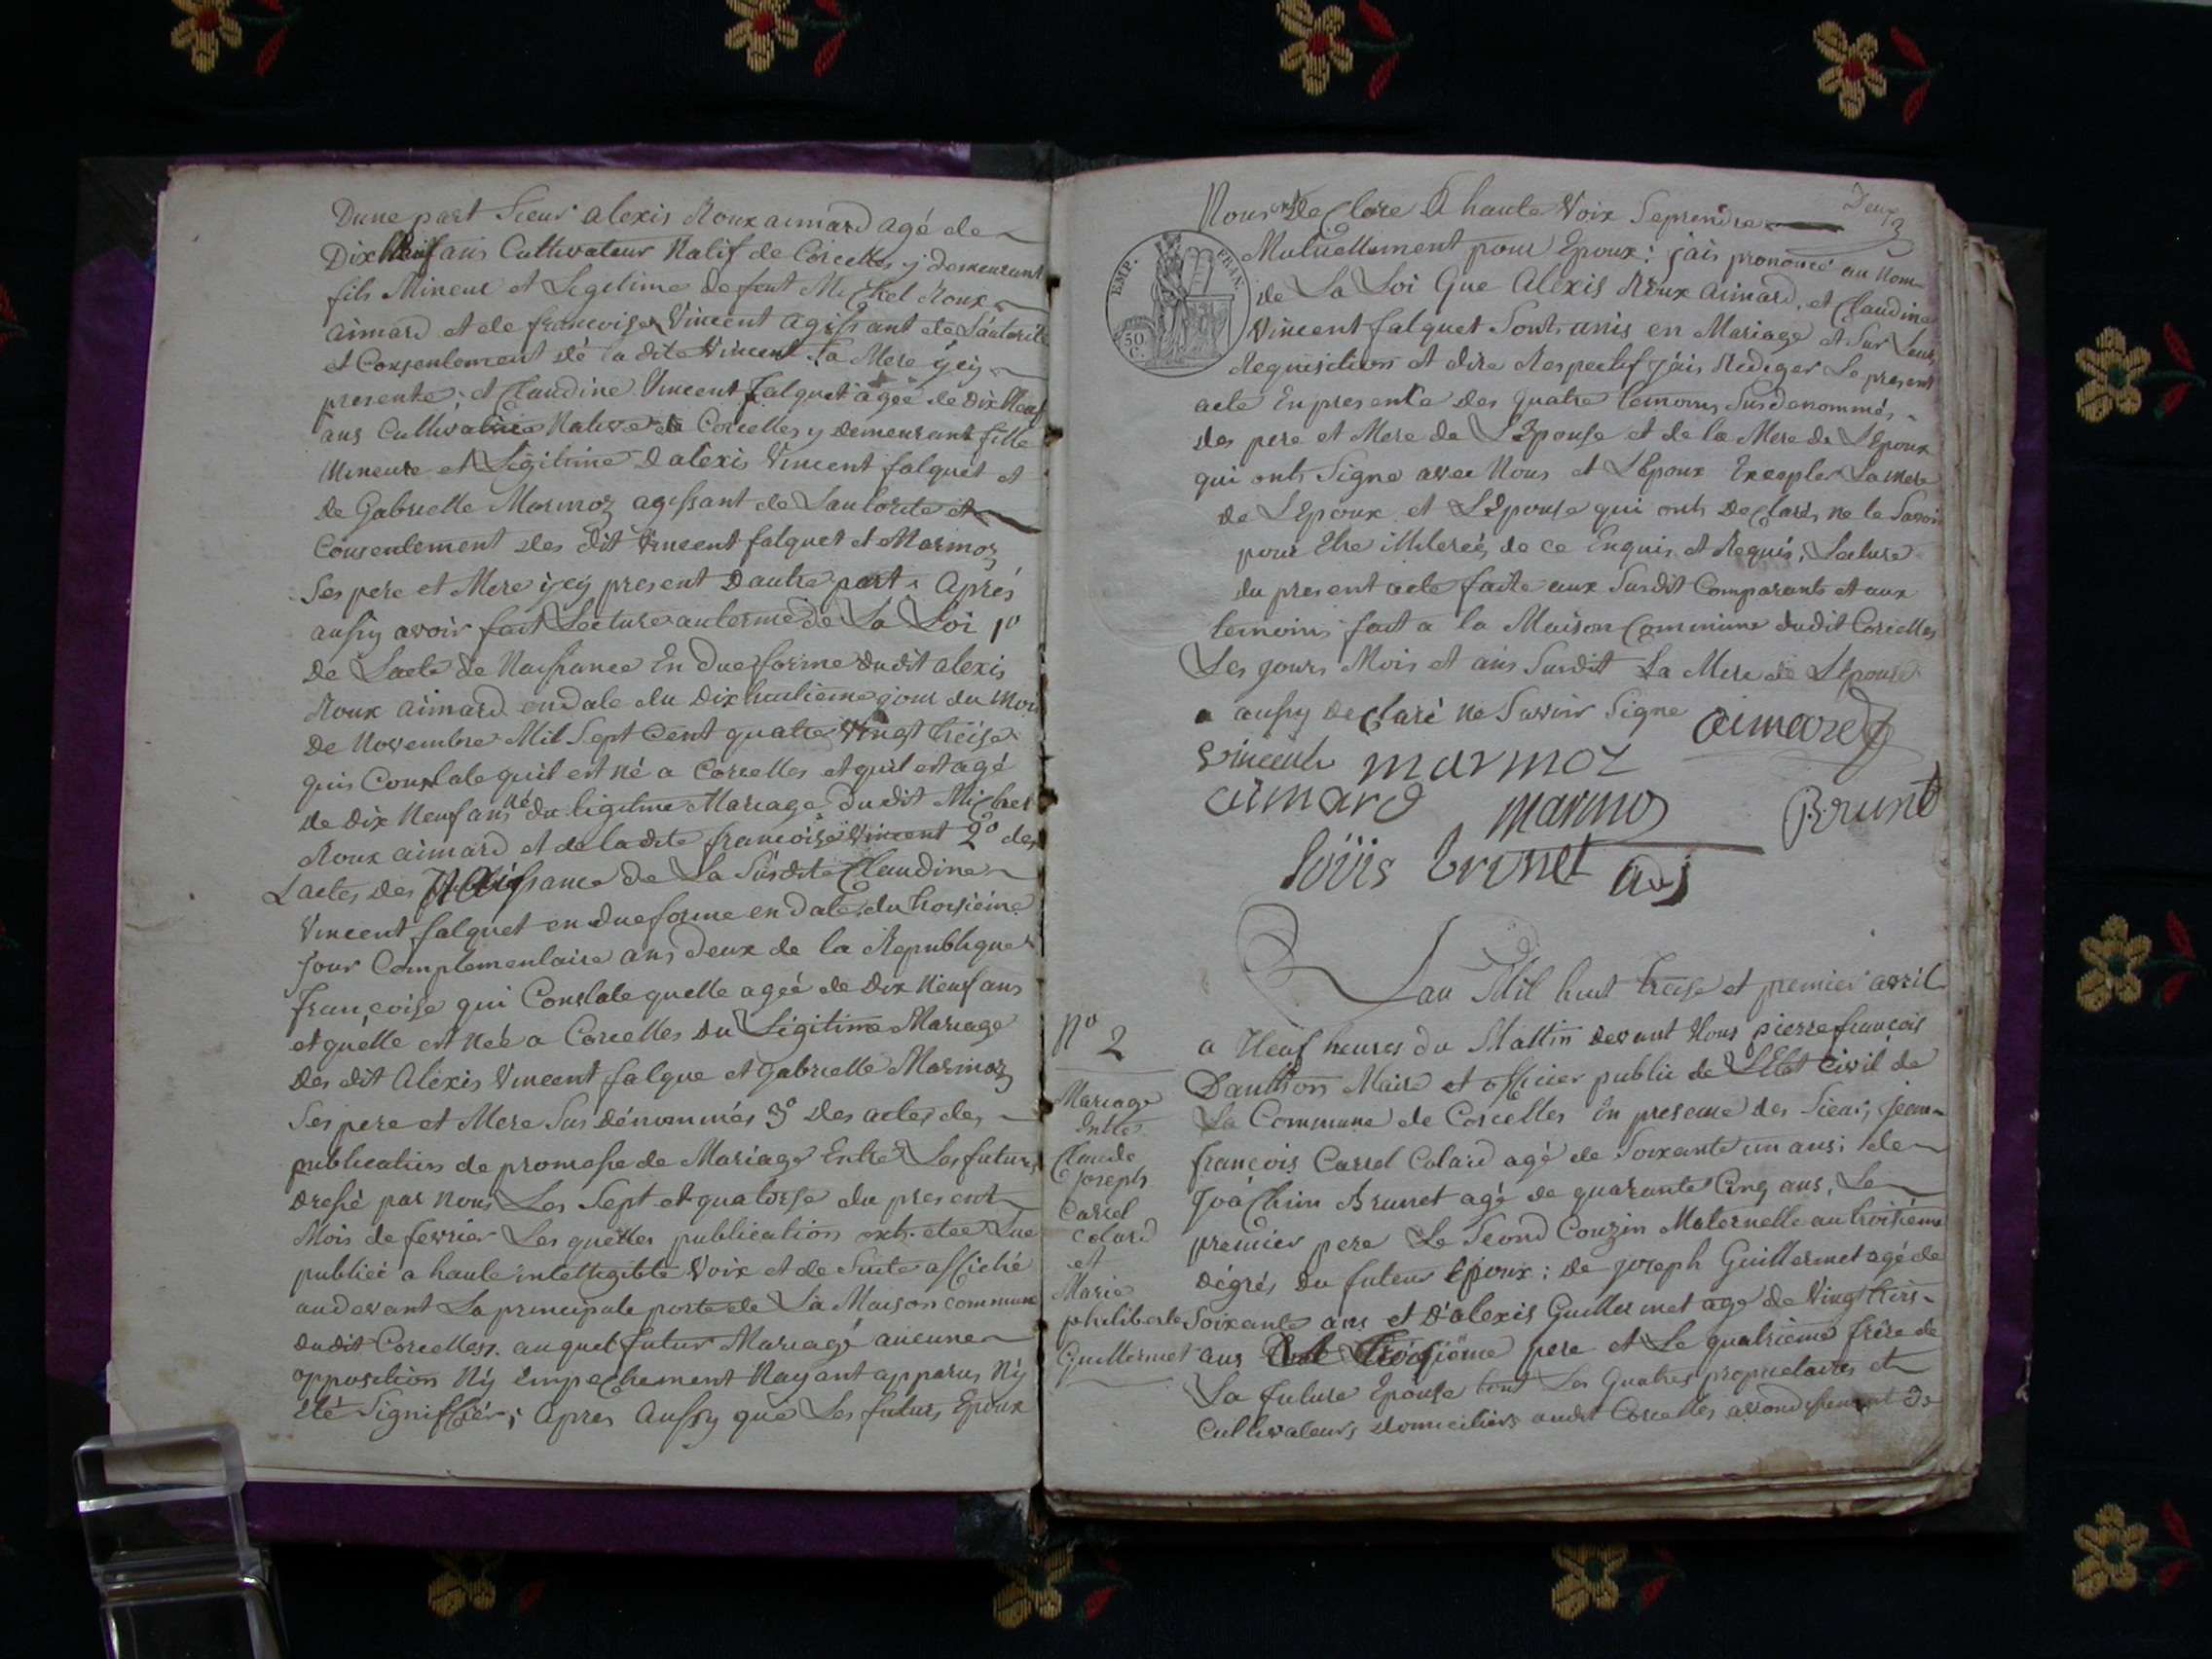 Dune part Sieur alexis Roux aimard agé de
Dix Neuf ans Cultivateur Natif de Corcelles y demeurant
fils Mineur et Legitime de feut Michel Roux
aimard et de francoise Vincent agissant de Lautorité
et Consentement dé la dite Vincent Sa Mere ÿcy
presente; et Claudine Vincent falquet agée de dix Neuf
ans Cultivatrice Native de Corcelles y demeurant fille
Mineure et Légitime D alexis Vincent falquet et
de Gabrielle Marmoz agissant de Lautorite et
Consentement des dit Vincent falquet et Marmoz
Ses pere et Mere ÿcy present D'autre part. Aprés
aussy avoir fait Lecture au terme de La Loi 1º
de Lacte de Naissance En due forme dudit alexis
Roux aimard en date du Dix huitième jour du Mois
De Novembre Mil Sept Cent quatre Vingt treise
quis Constate quil est né a Corcelles et quil est agé
de Dix Neuf ans né du ligitime Mariage dudit Michel
Roux aimard et de ladite francoise Vincent 2º de
Lactes des Naissance de La Susdite Claudine
Vincent falquet en due forme en date du troisiéme
Jour Complementaire ans deux de la Republique
françoise qui Constate quelle agée de Dix Neuf ans
et quélle est Née a Corcelles Du Légitime Mariage
Des dit Alexis Vincent falque et Gabrielle Marmoz
Ses pere et Mere Sus dénommés 3º Des actes des
publication de promesse de Mariage Entre Les futurs
dressé par nous Les Sept et quatorse du present
Mois de fevrier Les quelles publication onts etée Lue
publieé a haute intelligible Voix et de Suite affiché
au devant La principale porte de La Maison commune
dudit Corcelles. auquel futur Mariage aucune
opposition Ny Empechement Nayant apparus Ny
été Signiffiér; Apres Aussy que Les futurs Epoux
Deux
Nous ont De Clare A haute Voix Se prendre
EMP. FRAN.
50 C.
Mutuellement pour Epoux: j'ais prononcé au Nom
de La Loi Que Alexis Roux Aimard, et Claudine
Vincent falquet Sont unis en Mariage et Sur Leurs
Requisition et dire Respectif j'ais Rediger Le present
acte En presence des quatre temoins Susdenommés
des pere et Mere de L'Epouse et de la Mere de L'Epoux
qui onts Signe avec Nous et L'Epoux Excepter La Mere
de L'Epoux et L'Epouse qui onts Declarés ne le Savoir
pour Etre illiterés de ce Enquis et Requis; Lecture
du present acte faite aux Susdit Comparants et aux
temoins fait a la Maison Commune dudit Corcelles
Les jours Mois et ans Susdit La Mere de L'Epouse
a aussy De Claré ne Savoir Signe aimard
vincent marmoz
aimard marmoz Brunet
loüis brunet adj
Lan Mil huit treise et premier avril
Nº 2
a Neuf heures du Mattin devant Nous pierre françois
Dantson Maire et officier public de L'Etat Civil de
La Commune de Corcelles En presence des Sieurs Jean
françois Carrel Colard agé de Soixante un ans; de
Joachim Brunet agé de quarante Cinq ans, Le
premier pere Le Second Couzin Maternelle au troisieme
dégrés du futeur Epoux: de joseph Guillermet agé de
Soixante ans et D'alexis Guillermet agé de Vingt trois
ans Le Troisiéme pere et Le quatriéme frére de
La future Epouse tout Les Quatres proprietaires et
Cultivateurs domiciliers audit Corcelles arrondissement De
Mariage
Entre
Claude
Joseph
Carrel
Colard
et
Marie
philiberte
Guillermet